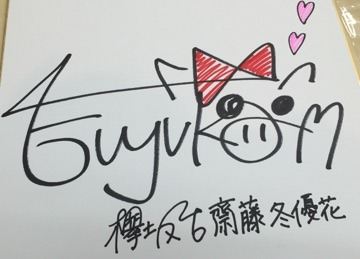 Fuyuka
欅坂46 齋藤冬優花